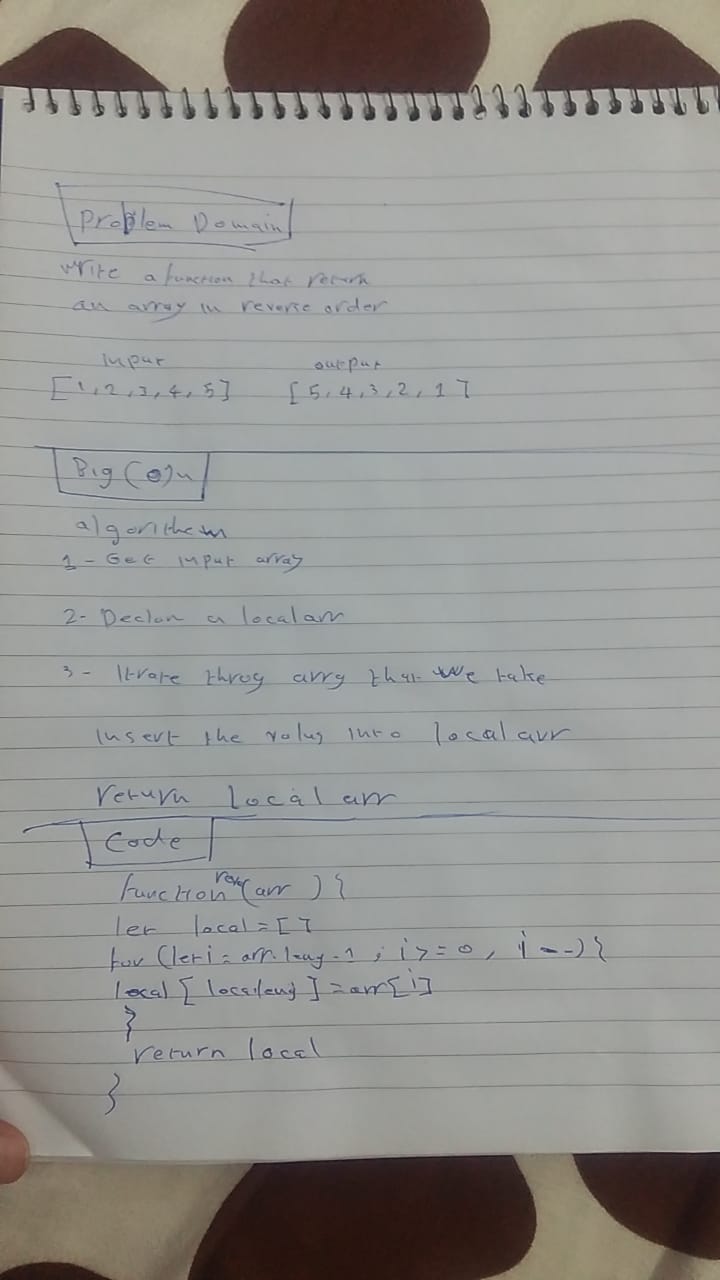 Problem Domain
Write a function that return
an array in reverse order
Input output
[1,2,3,4,5] [5,4,3,2,1]
Big (O)n
algorithem
1 - Get input array
2- Declar a local arr
3 - Itrate throg arry that we take
Insert the valus into local arr
return local arr
Code
function rever(arr ){
let local=[]
for (let i = arr.leng-1 ; i>=0, i--){
local[local.leng]=arr[i]
}
return local
}